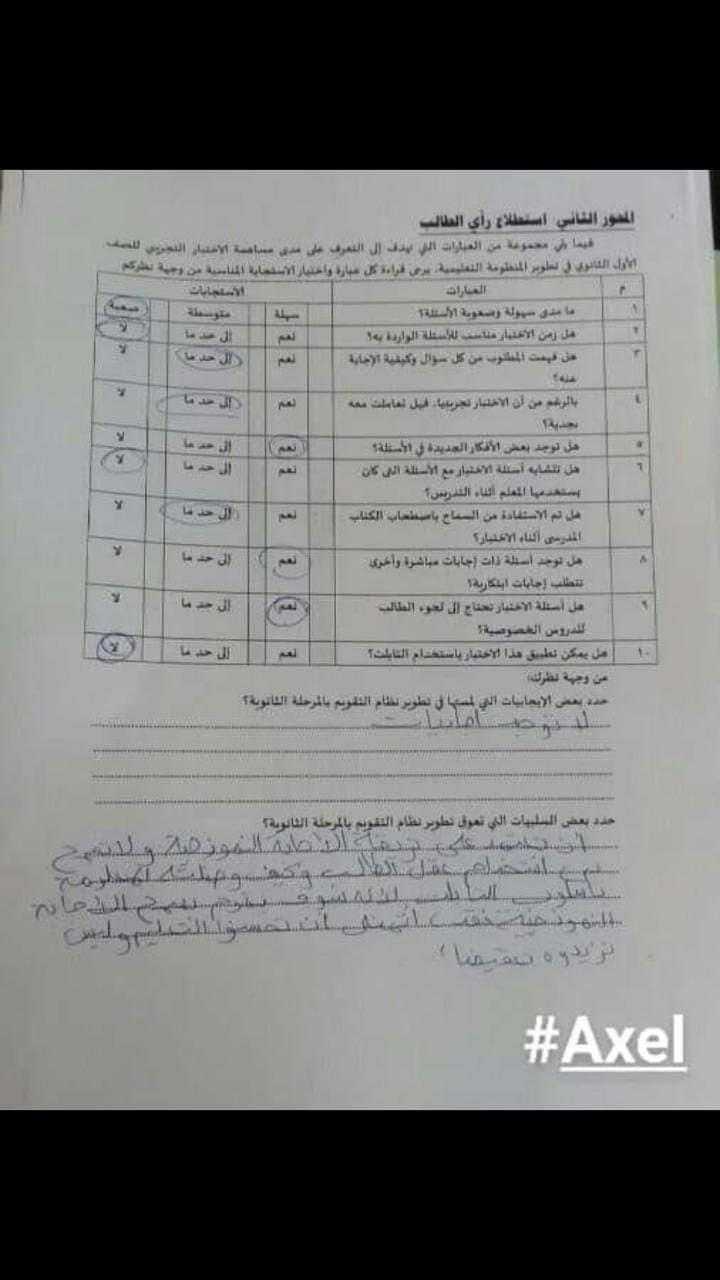 المحور الثاني استطلاع رأي الطالب
فيما يلي مجموعة من العبارات التي تهدف إلى التعرف على مدى مساهمة الاختبار التجريبي للصف
الأول الثانوي في تطوير المنظومة التعليمية، يرجى قراءة كل عبارة واختيار الاستجابة المناسبة من وجهة نظركم
م العبارات الاستجابات
١ ما مدى سهولة وصعوبة الأسئلة؟ سهلة متوسطة صعبة
٢ هل زمن الاختبار مناسب للأسئلة الواردة به؟ نعم إلى حد ما لا
٣ هل فهمت المطلوب من كل سؤال وكيفية الإجابة نعم إلى حد ما لا
عنه؟
٤ بالرغم من أن الاختبار تجريبيا، فهل تعاملت معه نعم إلى حد ما لا
بجدية؟
٥ هل توجد بعض الأفكار الجديدة في الأسئلة؟ نعم إلى حد ما لا
٦ هل تتشابه أسئلة الاختبار مع الأسئلة التى كان نعم إلى حد ما لا
يستخدمها المعلم أثناء التدريس؟
٧ هل تم الاستفادة من السماح باصطحاب الكتاب نعم إلى حد ما لا
المدرسى أثناء الاختبار؟
٨ هل توجد أسئلة ذات إجابات مباشرة وأخرى نعم إلى حد ما لا
تتطلب إجابات ابتكارية؟
٩ هل أسئلة الاختبار تحتاج إلى لجوء الطالب نعم إلى حد ما لا
للدروس الخصوصية؟
١٠ هل يمكن تطبيق هذا الاختبار باستخدام التابلت؟ نعم إلى حد ما لا
من وجهة نظرك:
حدد بعض الإيجابيات التي لمستها في تطوير نظام التقويم بالمرحلة الثانوية؟
لا توجد
حدد بعض السلبيات التي تعوق تطوير نظام التقويم بالمرحلة الثانوية؟
على الاجابة النموذجية ولا
استخدام عقل الطالب وكيف المعلومة
لانه سوف يقوم الاجابة
النموذجية فقط ان تحسنوا التعليم وليس
#Axel